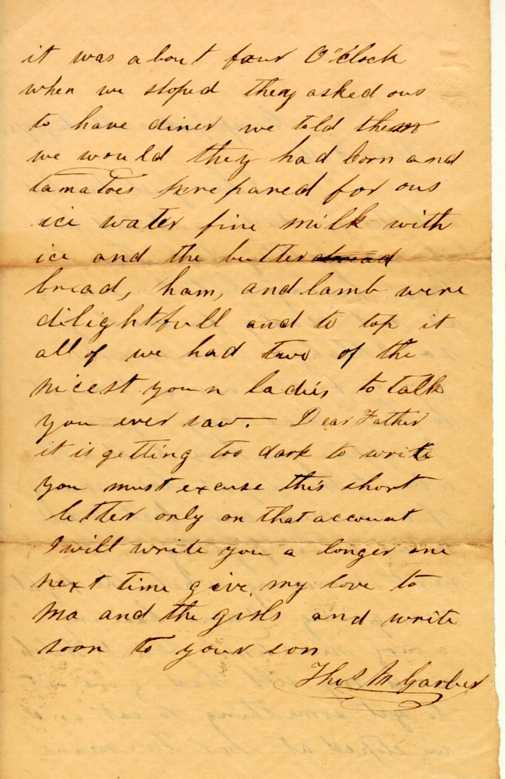 it was about four O'clock
when we stoped they asked ous
to have diner we told them
we would they had born and
tamatoes prepared for ous
ice water fine milk with
ice and the butter
bread, ham, and lamb were
dilightfull and to top it
all of we had two of the
nicest youn ladies to talk
you ever saw. Dear Father
it is getting too dark to write
you must excuse this short
letter only on that account
I will write you a longer one
next time give my love to
Ma and the girls and write
soon to your son
Thos M Garber